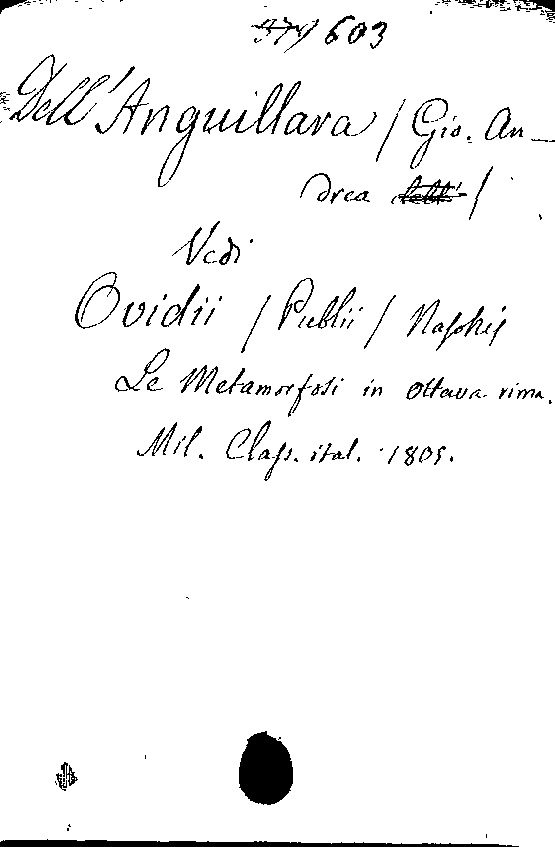 603
Dell'Anguillara / Gio. An-
drea /
Vedi
Ovidii / Publii / Nasonis
Le Metamorfosi in ottava rima.
Mil. Class. ital. 1805.